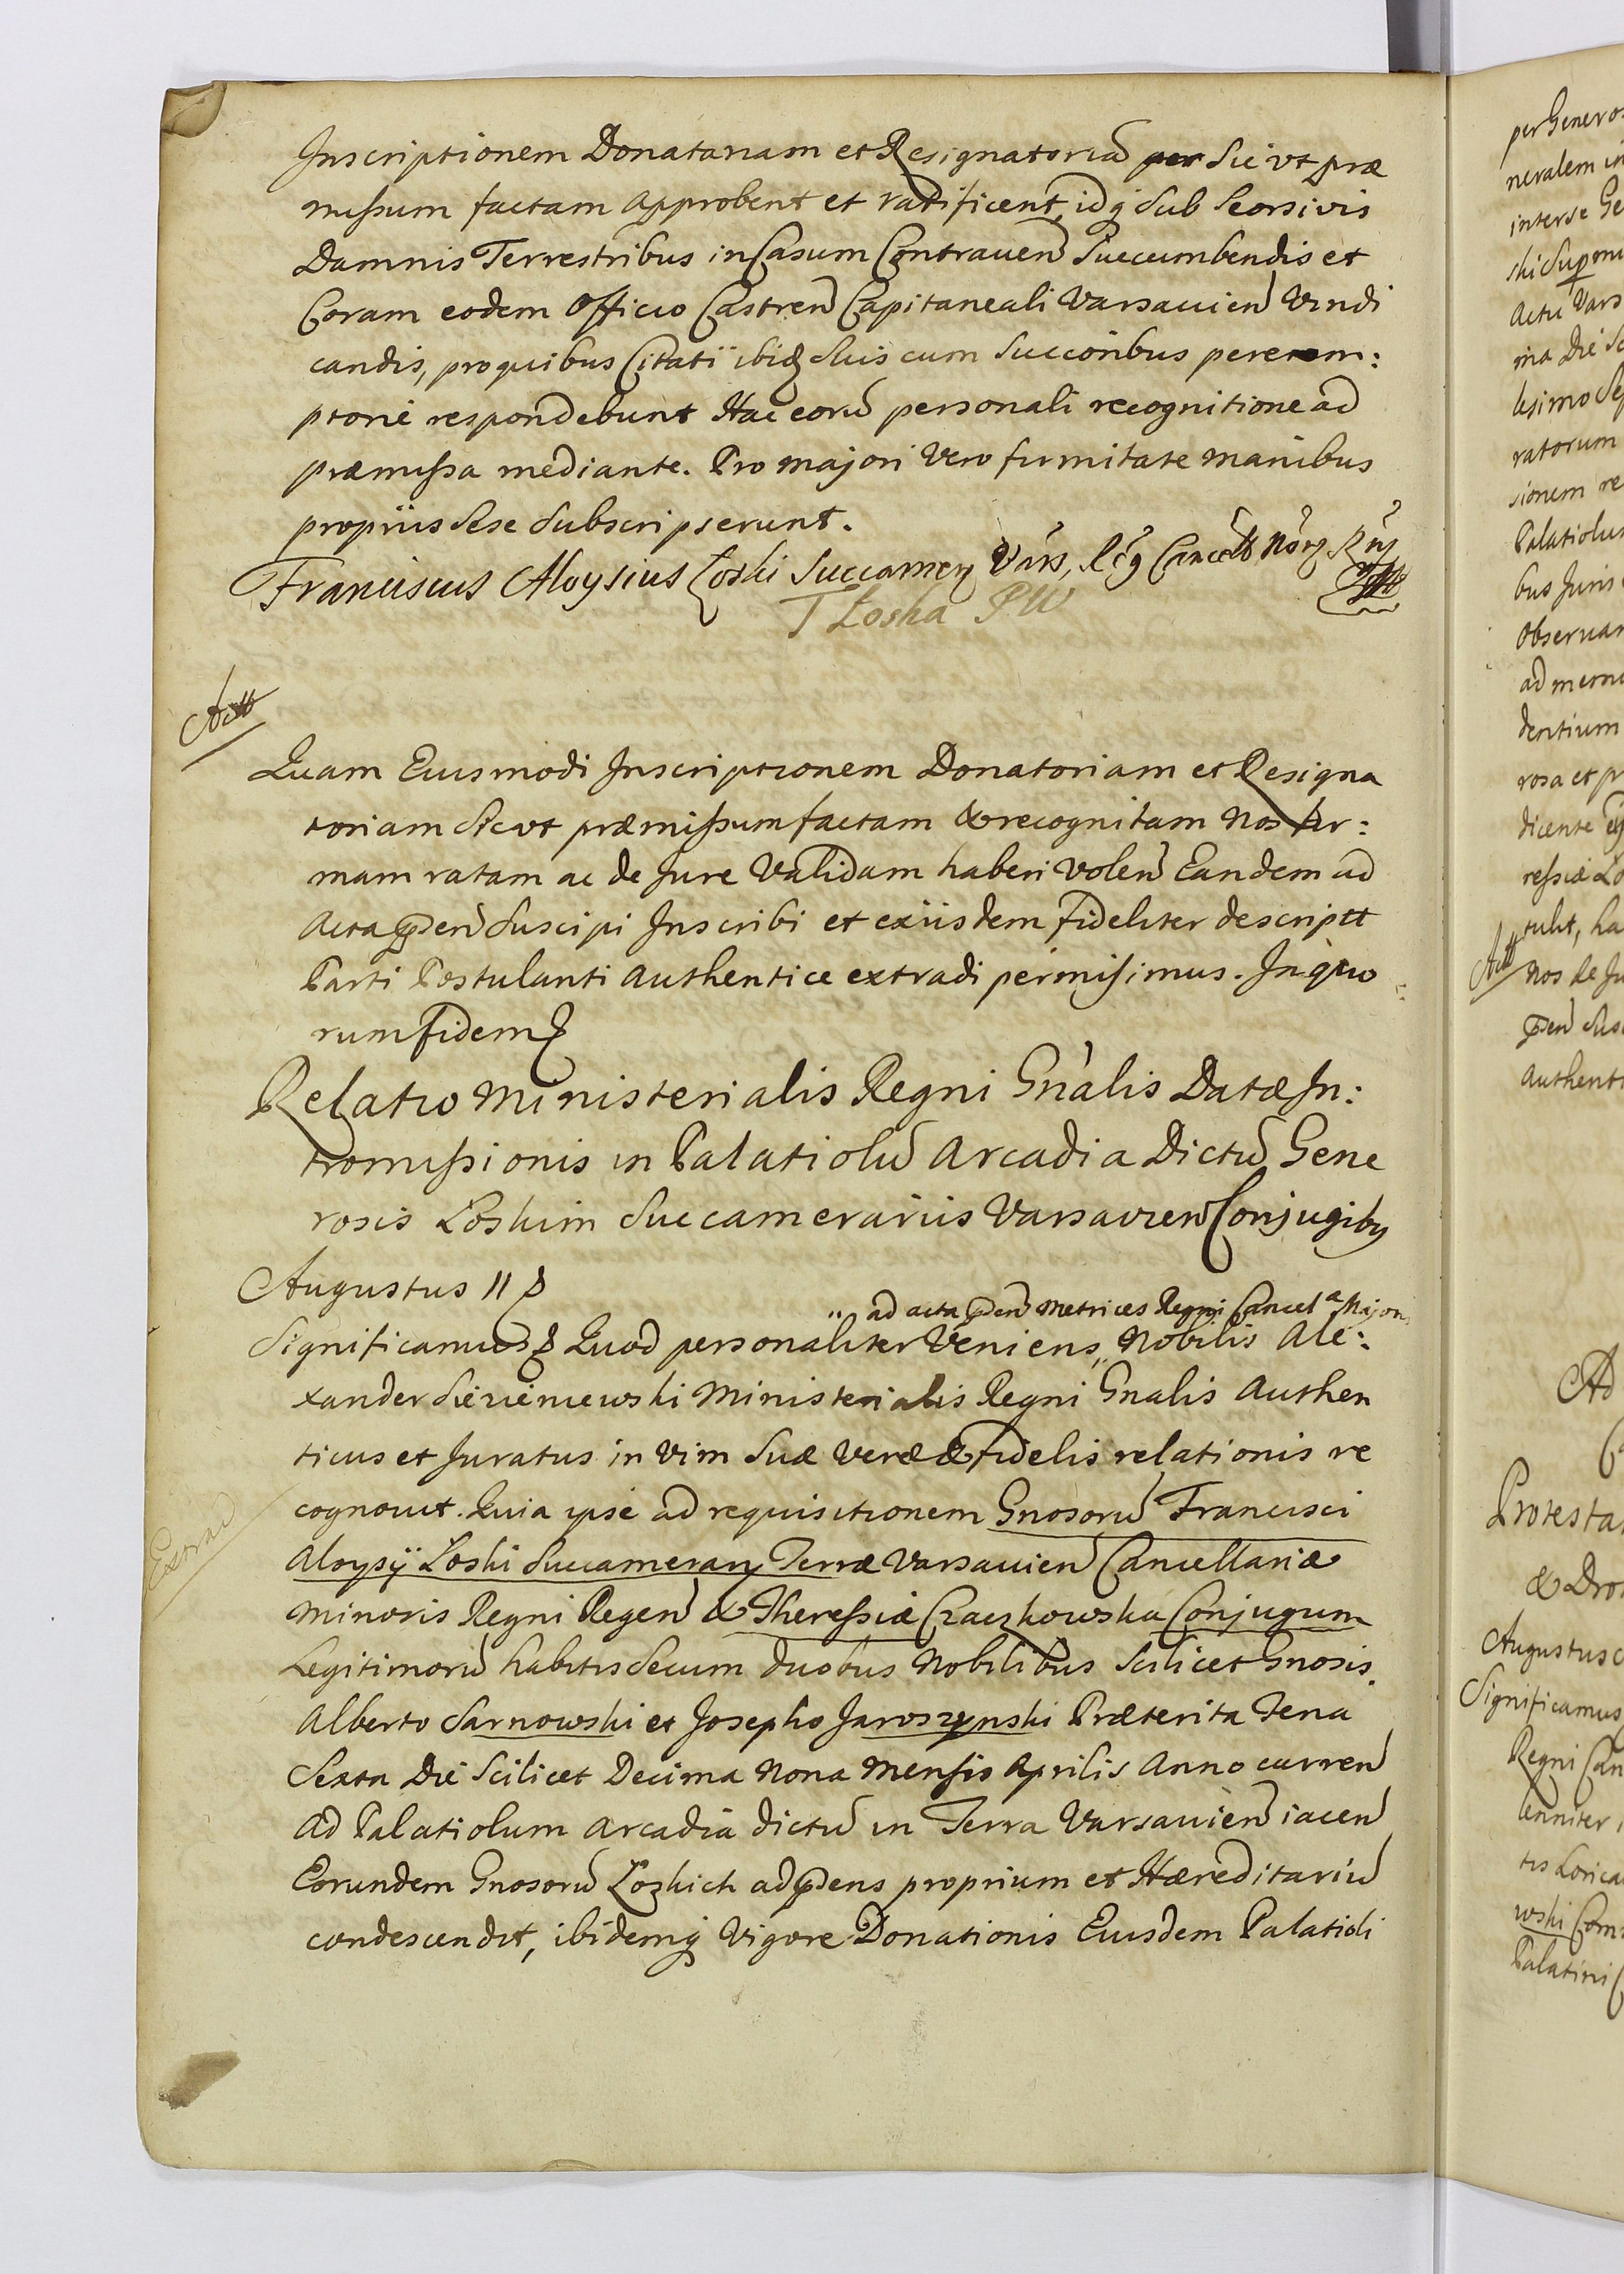 Inscriptionem Donatariam et Resignatoriã per Sic ut præ
missum factam approbent et ratificent, idq́ Sub Seorsivis
Damnis Terrestribus in Casum Contrauen̄ Succumbendis et
Coram eodem Officio Castren̄ Capitaneali Varsauien̄ Vindi
candis, pro quibus Citati ibid Suis cum Succoribus perem:
ptorie respondebunt Hac eorũ personali recognitione ad
præmissa mediante. Pro majori Vero firmitate manibus
propriis Sese Subscripserunt.
Franciscus Aloysius Łoski Succamery Vars, Rg Cancell
T Łoska PW
Actt
Quam Eiusmodi Inscriptionem Donatoriam et Resigna
toriam Sicut præmissum factam & recognitam Nos fir:
mam ratam ac de Jure Validam haberi volen̄ Eandem ad
Acta p̄sen̄ Suscipi Inscribi et ex iisdem fideliter descriptt
Parti Postulanti Authentice extradi permisimus. In quo
rum fidem
Relatio Ministerialis Regni Gn̄alis Datæ In:
tromissionis in Palatiolũ Arcadia Dictũ Gene
rosis Łoskim Succamerariis Varsavien̄ Conjugiby
Augustus II
Significamus Quod personaliter Veniens,, Nobilis Ale:
,, ad acta p̄sen̄ Metrices Regni Cancelª Major
xander Sieieniewski Ministerialis Regni Gnalis Authen
ticus et Juratus in Vim Suæ Veræ & fidelis relationis re
cognouit. Quia ipse ad requisitionem Gnosorũ Francisci
Aloysÿ Łoski Succamerary Terræ Varsauien̄ Cancellariæ
Minoris Regni Regen̄ & Theressiæ Czaczkowska Conjugum
Legitimorũ habitis Secum duobus Nobilibus Scilicet Gnosis
Alberto Sarnowski et Josepho Jaroszynski Præterita Feria
Sexta Die Scilicet Decima Nona Mensis Aprilis Anno curren̄
Ad Palatiolum Arcadia dictũ in Terra Varsauien̄ iacen̄
Eorundem Gnosorũ Łozkich ad p̄sens proprium et Hæreditariũ
condescendit, ibidemq́ Vigore Donationis Eiusdem Palatioli
per Generos
neralem in
inter se Ge
ski
Actu Vars
ma Die
lesimo
ratorum
sionem re
Palatiolu
bus Juris
Observan
ad
dentium
rosa et pr
dicente
ressiæ Ło
tulit, ha
Actt
Nos de Ju
p̄sen̄ Sus
Authenti
Ad
Protesta
& Dro
Augustus
Significamus
Regni Can
lenniter
tis Lorica
wski Com
Palatini